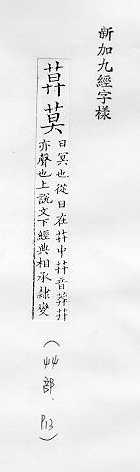 新加九經字樣
莫
日冥也從日在茻中茻音莽茻
亦聲也上說文下經典相承隸變
(艸部、P13)